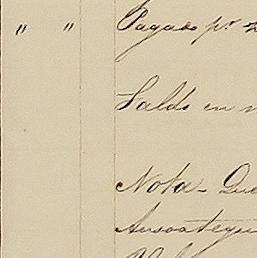 " " Pagado pr
Saldo en
Nota - Que
Ansoategui